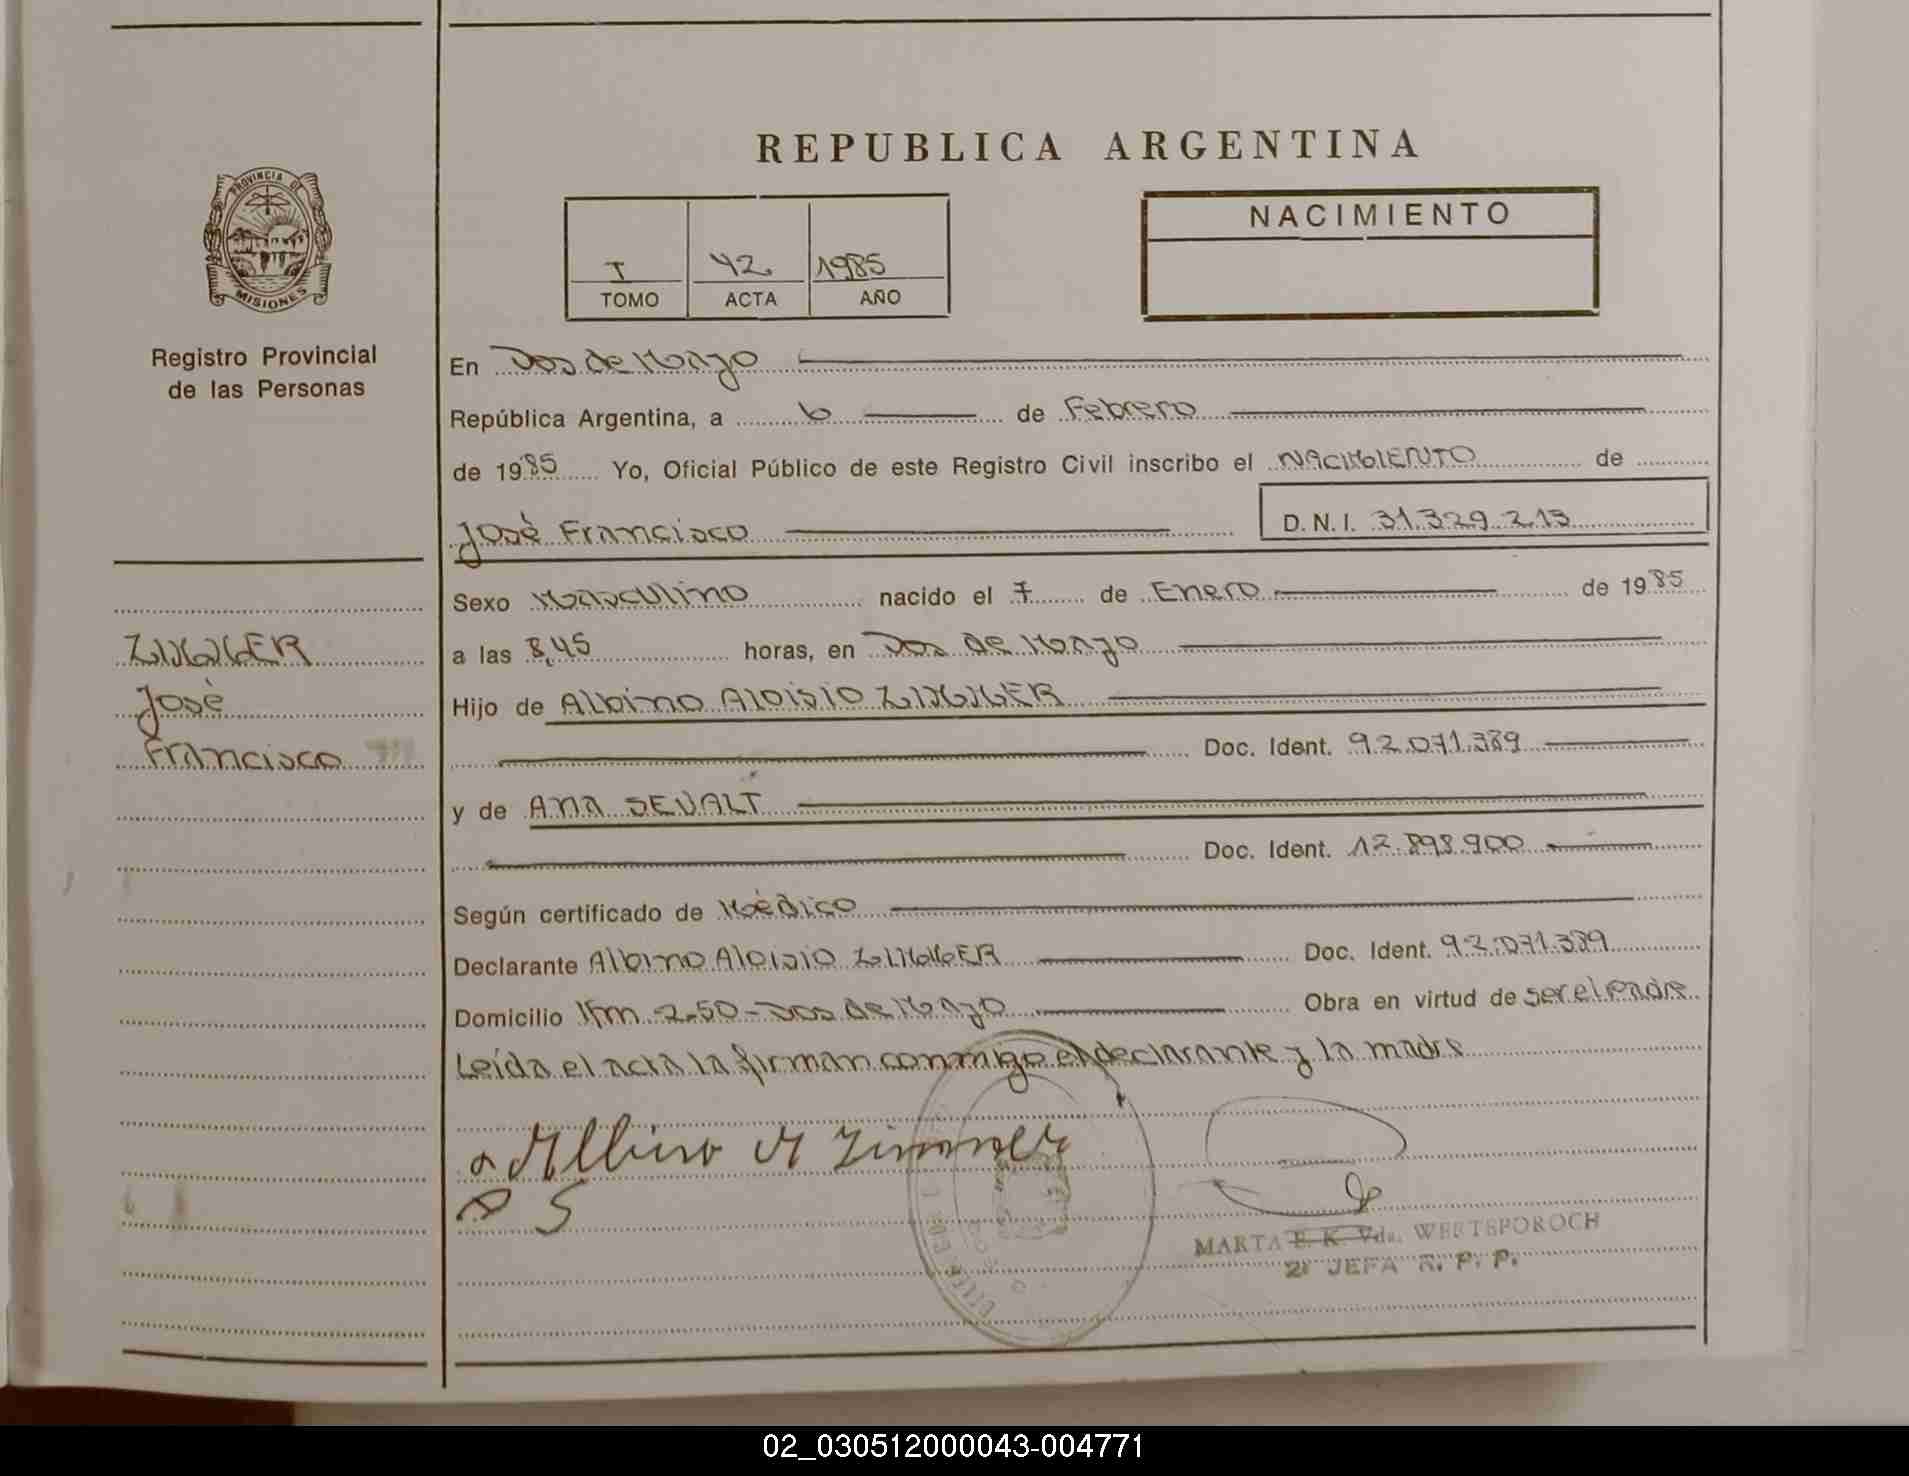 REPUBLICA ARGENTINA
PROVINCIA DE
MISIONES
Registro Provincial
de las Personas
I 42 1985
TOMO ACTA AÑO
NACIMIENTO
En Dos de Mayo
República Argentina, a 6 de Febrero
de 1985 Yo, Oficial Público de este Registro Civil inscribo el NACIMIENTO de
José Francisco D.N.I. 31.329.213
Sexo Masculino nacido el 7 de Enero de 1985
a las 8,45 horas, en Dos de Mayo
Hijo de Albino Aloisio ZIMMER
Doc. Ident. 92.071.389
y de Ana SEVALT
Doc. Ident. 12.898.900
Según certificado de Médico
Declarante Albino Aloisio ZIMMER Doc. Ident. 92.071.389
Domicilio Km 250 - Dos de Mayo Obra en virtud de ser el Padre
Leída el acta la firman conmigo el declarante y la madre
ZIMMER
José
Francisco
Albino A Zimmer
A S
MARTA E. K. Vda. WERTSPOROCH
2ª JEFA R. P. P.
02_030512000043-004771